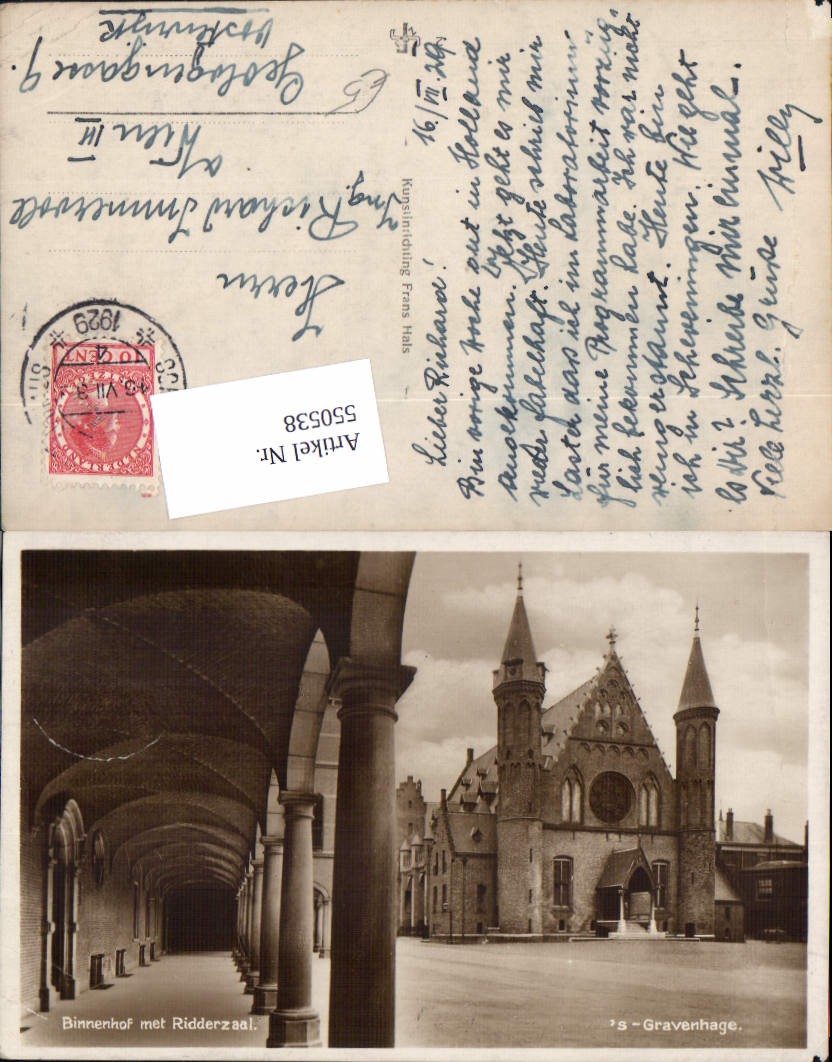 16./VII 29.
Lieber Richard!
Bin vorige Woche gut in Holland
angekommen. Jetzt geht es mir
wieder fabelhaft. Heute schrieb mir
Laster das ich im Laboratorium
für meine Programmarbeit vorzüg-
lich bekommen habe. Ich war nicht
wenig erstaunt. Heute bin
ich in Scheveningen. Wie geht
es Dir? Schreibe mir einmal.
Viele herzl. Grüße Willy
Kunstinrichting Frans Hals
Herrn
Ing. Richard Immervoll
a/ Wien III
Geologengasse 9.
Oostenrijk
€5
NEDERLAND
10 CENT
16 VII
4
1929
Artikel Nr.
550538
Binnenhof met Ridderzaal.
's-Gravenhage.